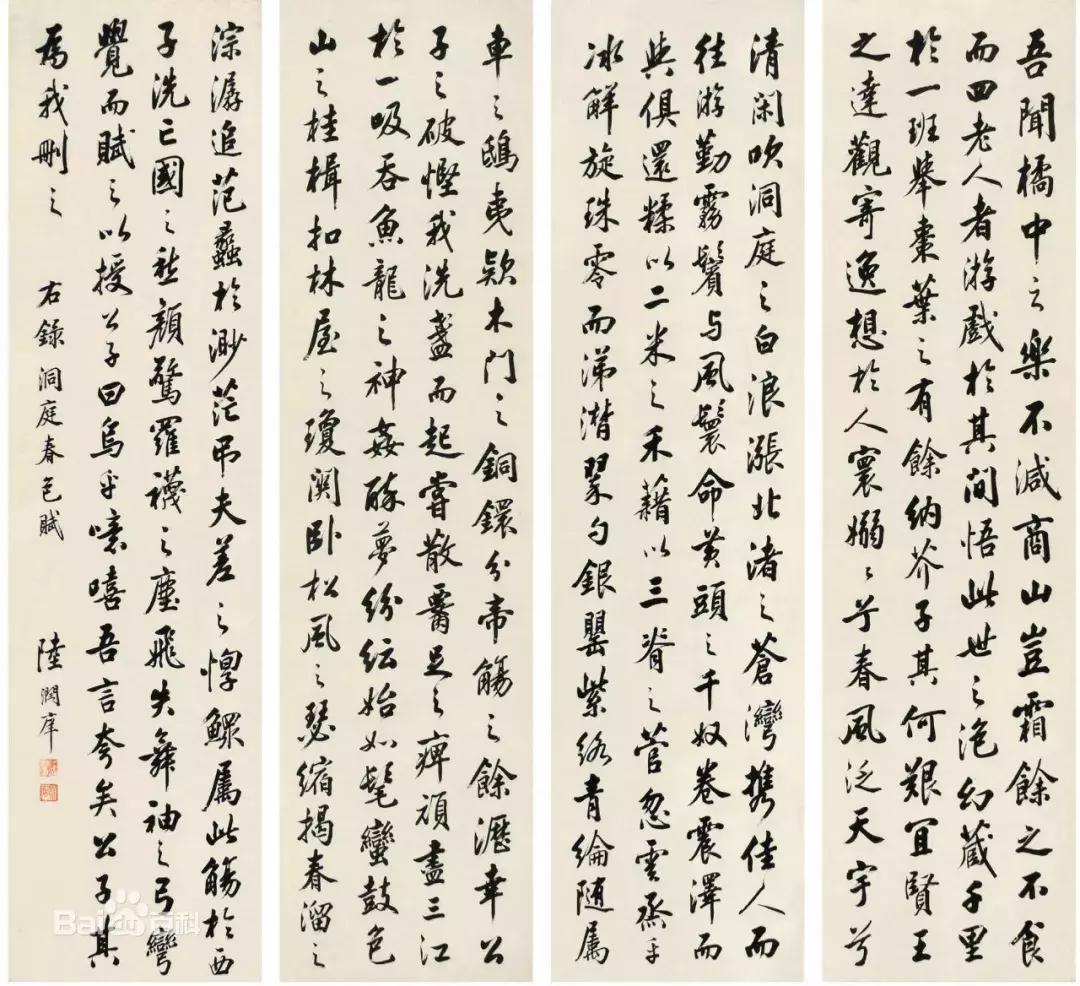 吾聞橘中之樂不減商山豈霜餘之不食
而四老人者游戲於其間悟此世之泡幻藏千里
於一班舉棗葉之有餘納芥子其何艱宜賢王
之達觀寄逸想於人寰嫋々兮春風泛天宇兮
清閑吹洞庭之白浪漲北渚之蒼灣携佳人而
往游勤霧鬢与風鬟命黃頭之千奴卷震澤而
與俱還糅以二米之禾藉以三脊之菅忽雲烝乎
冰解旋珠零而涕潸翠勺銀罌紫絡青綸随属
車之鴟夷欵木門之銅鐶分帝觴之餘瀝幸公
子之破慳我洗盞而起嘗散腰足之痺頑盡三江
於一吸吞魚龍之神姦醉夢紛紜始如髦蠻鼓包
山之桂楫扣林屋之瓊関卧松風之瑟縮揭春溜之
淙潺追范蠡於渺茫吊夫差之惸鰥属此觴於西
子洗亡國之愁顏驚羅襪之塵飛失舞袖之弓彎
覺而賦之以授公子曰烏乎噫嘻吾言夸矣公子其
為我刪之 右錄洞庭春色賦 陸潤庠
Bai百科